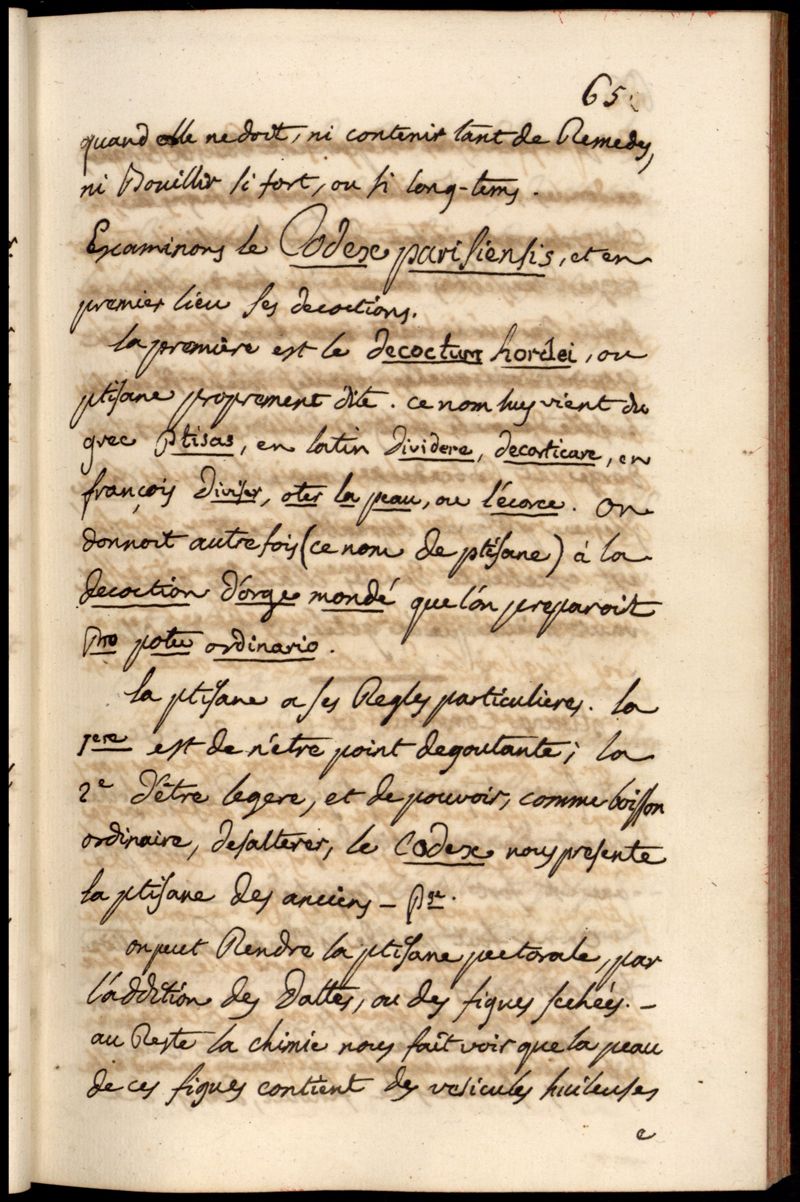 65.
quand elle ne doit, ni contenir tant de Remedes,
ni Bouillir si fort, ou si long-tems.
Examinons le Codex parisiensis, et en
premier lieu ses decoctions.
la premiere est le decoctum hordei, ou
ptisane proprement dite. ce nom luy vient du
grec ptisas, en latin dividere, decorticare, en
françois diviser, oter la peau, ou l'écorce. on
donnoit autrefois (ce nom de ptisane) à la
decoction d'orge mondé que l'on preparoit
pro potu ordinario.
la ptisane a ses Regles particulieres. la
1ere est de n'etre point degoutante; la
2e d'être legere, et de pouvoir, comme boisson
ordinaire, desalterer, le Codex nous presente
la ptisane des anciens -
on peut Rendre la ptisane pectorale, par
l'addition des Dattes, ou des figues sechées. -
au Reste la chimie nous fait voir que la peau
de ces figues contient des vesicules huileuses
e